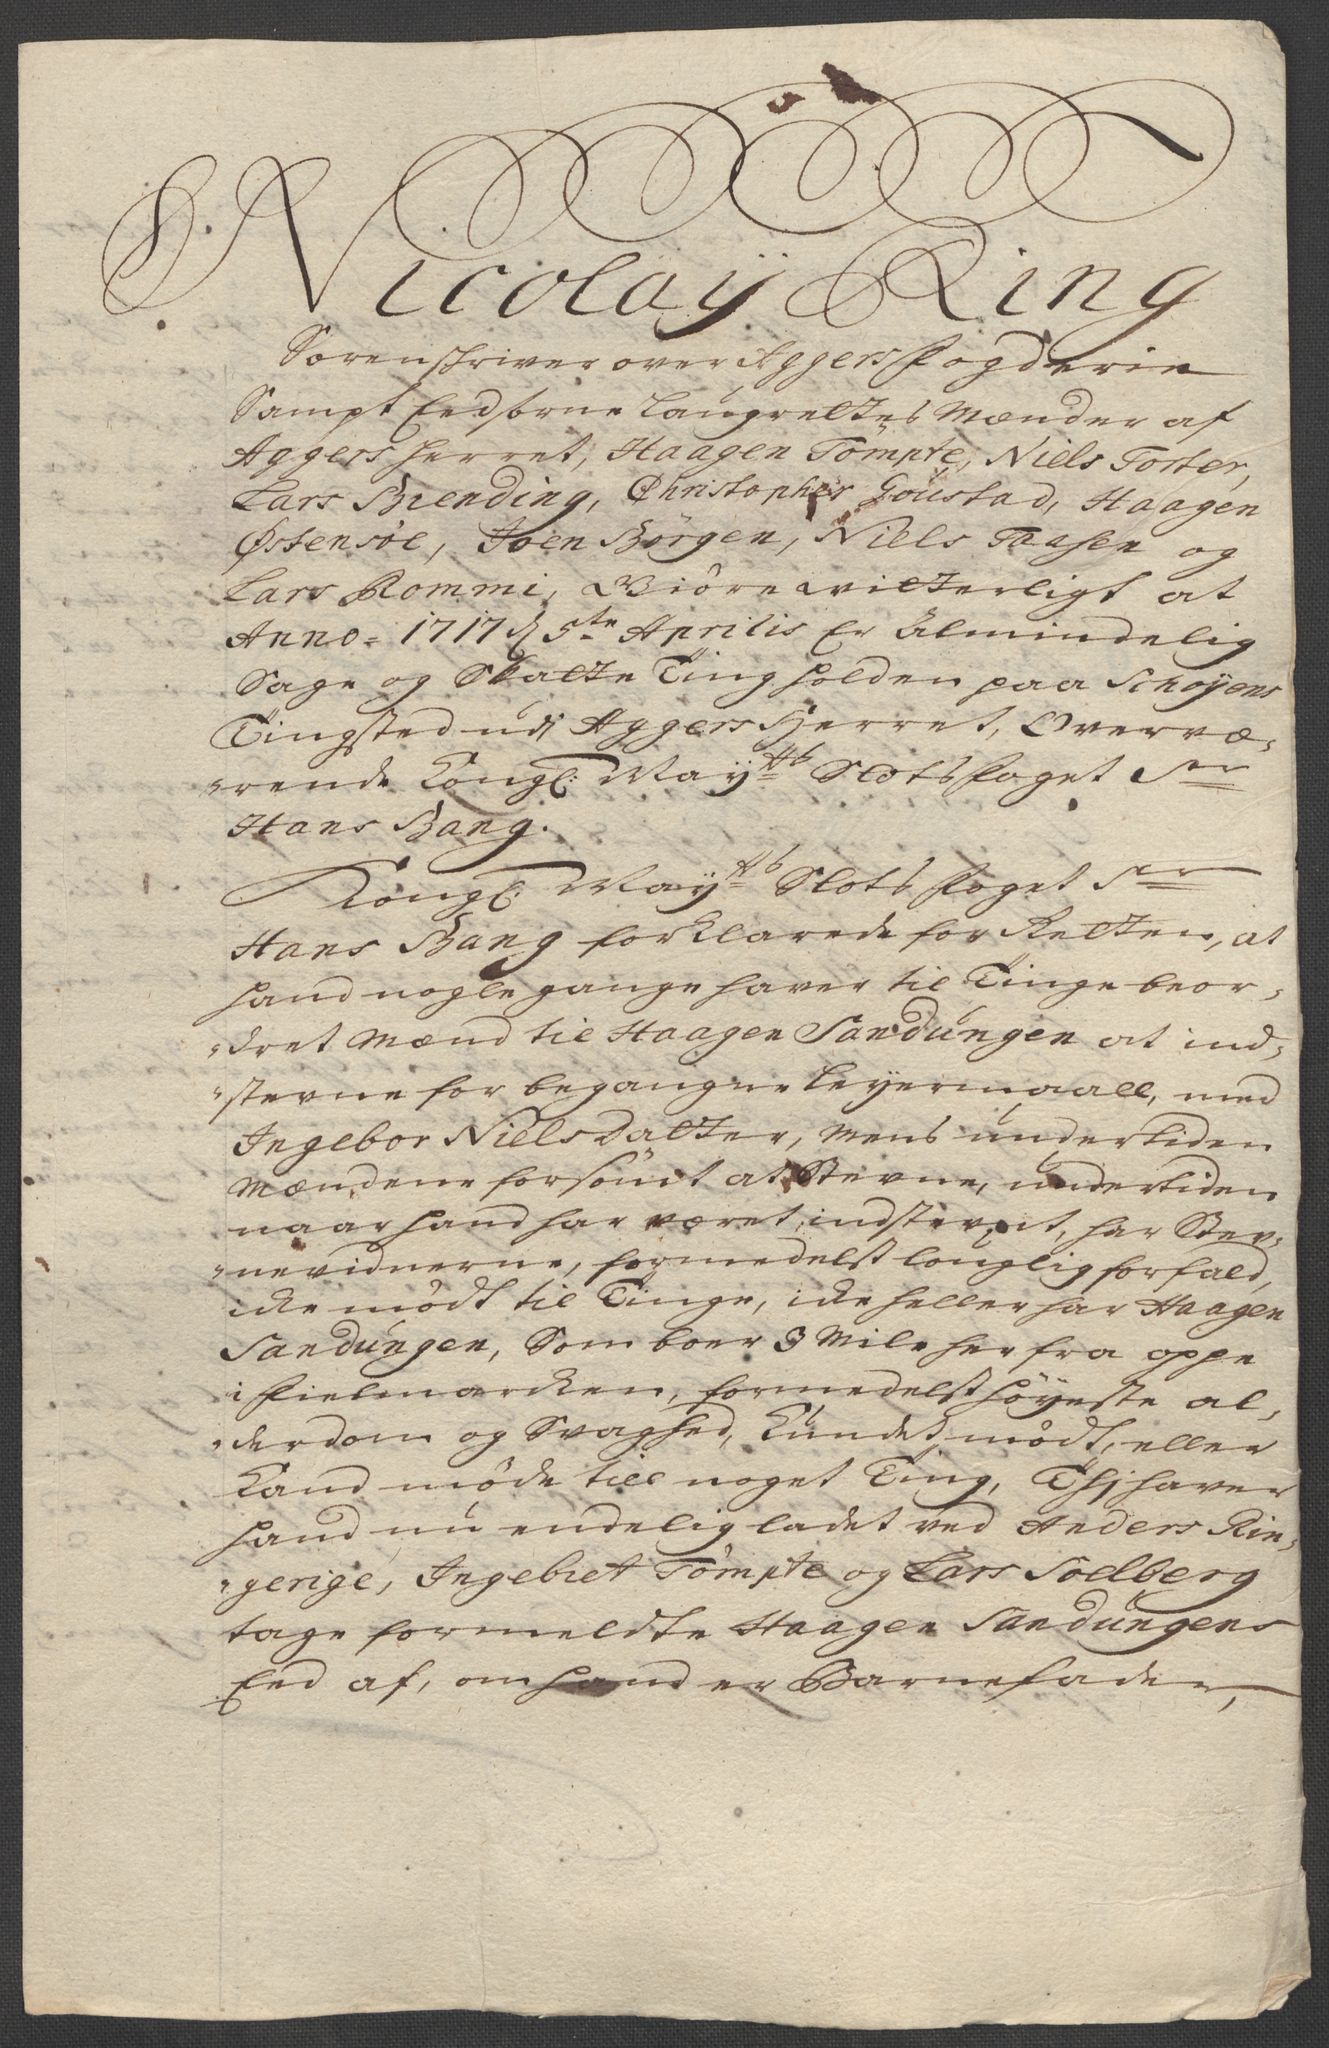 Nicolaÿ Ring
Sorenskriver over Aggers Fogderie
Sampt Eedsorne Laugrettes Mænder af
Aggers Herret, Haagen Tømpte, Niels Torter,
Lars Brending, Christopher Goustad, Haagen
Østensøe, Joen Børgen, Niels Taasen og
Lars Rommi, Giöre witterligt at
Anno 1717 d 5te Aprilis Er Almindelig
Sage og Skatte Ting holden paa Schøyens
Tingsted udi Aggers Herret, Overvæ-
-rende Kongl: Mayts Slots Foget Sr
Hans Bang.
Kongl: Mayts Slots Foget Sr
Hans Bang forklarede for Retten, at
hand nogle gange haver til Tinge beor-
-dret Mænd til Haagen Sandungen at ind-
-stevne for begangne Leyermaall, med
Ingebor Nielsdatter, Mens undertiden
Mændene forsömt at Stevne, undertiden
naar hand har været indstevnt, har Stev-
-nevidnerne, formedelst louglig forfald,
icke mödt til Tinge, icke heller har Haagen
Sandungen, Som boer 3 Mile her fra oppe
i Fielmarcken, formedelst höyeste al-
-derdom og Svaghed, kundet mödt, eller
kand möde till noget Ting, Thj haver
hand nu endelig ladet ved Anders Rin-
-gerige, Ingebret Tømpte og Lars Solberg
tage formeldte Haagen Sandungens
Eed af, om hand er Barnefader,